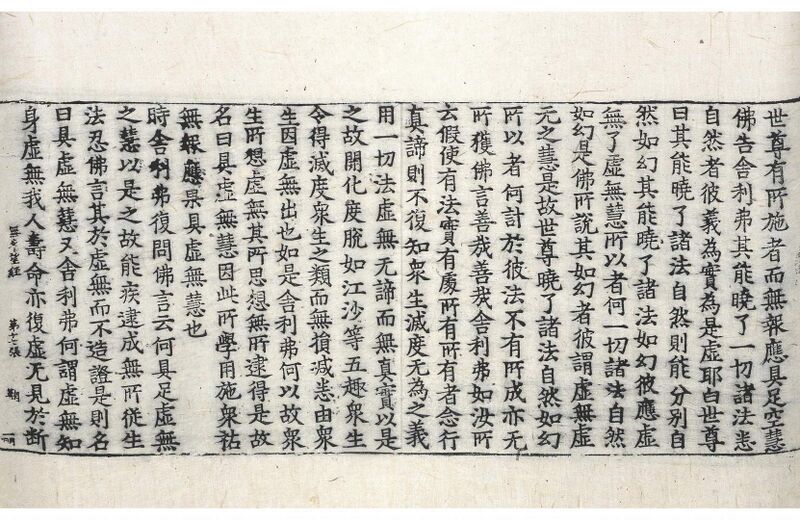 世尊有所施者而無報應具足空慧
佛告舍利弗其能曉了一切諸法悉
自然者彼義為實為是虛耶白世尊
曰其能曉了諸法自然則能分别自
然如幻其能曉了諸法如幻彼應虛
無了虛無慧所以者何一切諸法自然
如幻是佛所說其如幻者彼謂虛無虛
无之慧是故世尊曉了諸法自然如幻
所以者何計於彼法不有所成亦无
所獲佛言善哉善哉舍利弗如汝所
云假使有法實有處所有所有者念行
真諦則不復知衆生滅度无為之義
用一切法虛無无諦而無真實以是
之故開化度脫如江沙等五趣衆生
令得滅度衆生之類而無損減悉由衆
生因虛無出也如是舍利弗何以故衆
生所想虛無其所思想無所逮得是故
名曰具虛無慧因此所學用施衆祐
無報應是具虛無慧也
時舍利弗復問佛言云何具足虛無
之慧以是之故能疾逮成無所從生
法忍佛言其於虛無而不造證是則名
曰具虛無慧又舍利弗何謂虛無知
身虛無我人壽命亦復虛无見於斷
無希望經 第 張